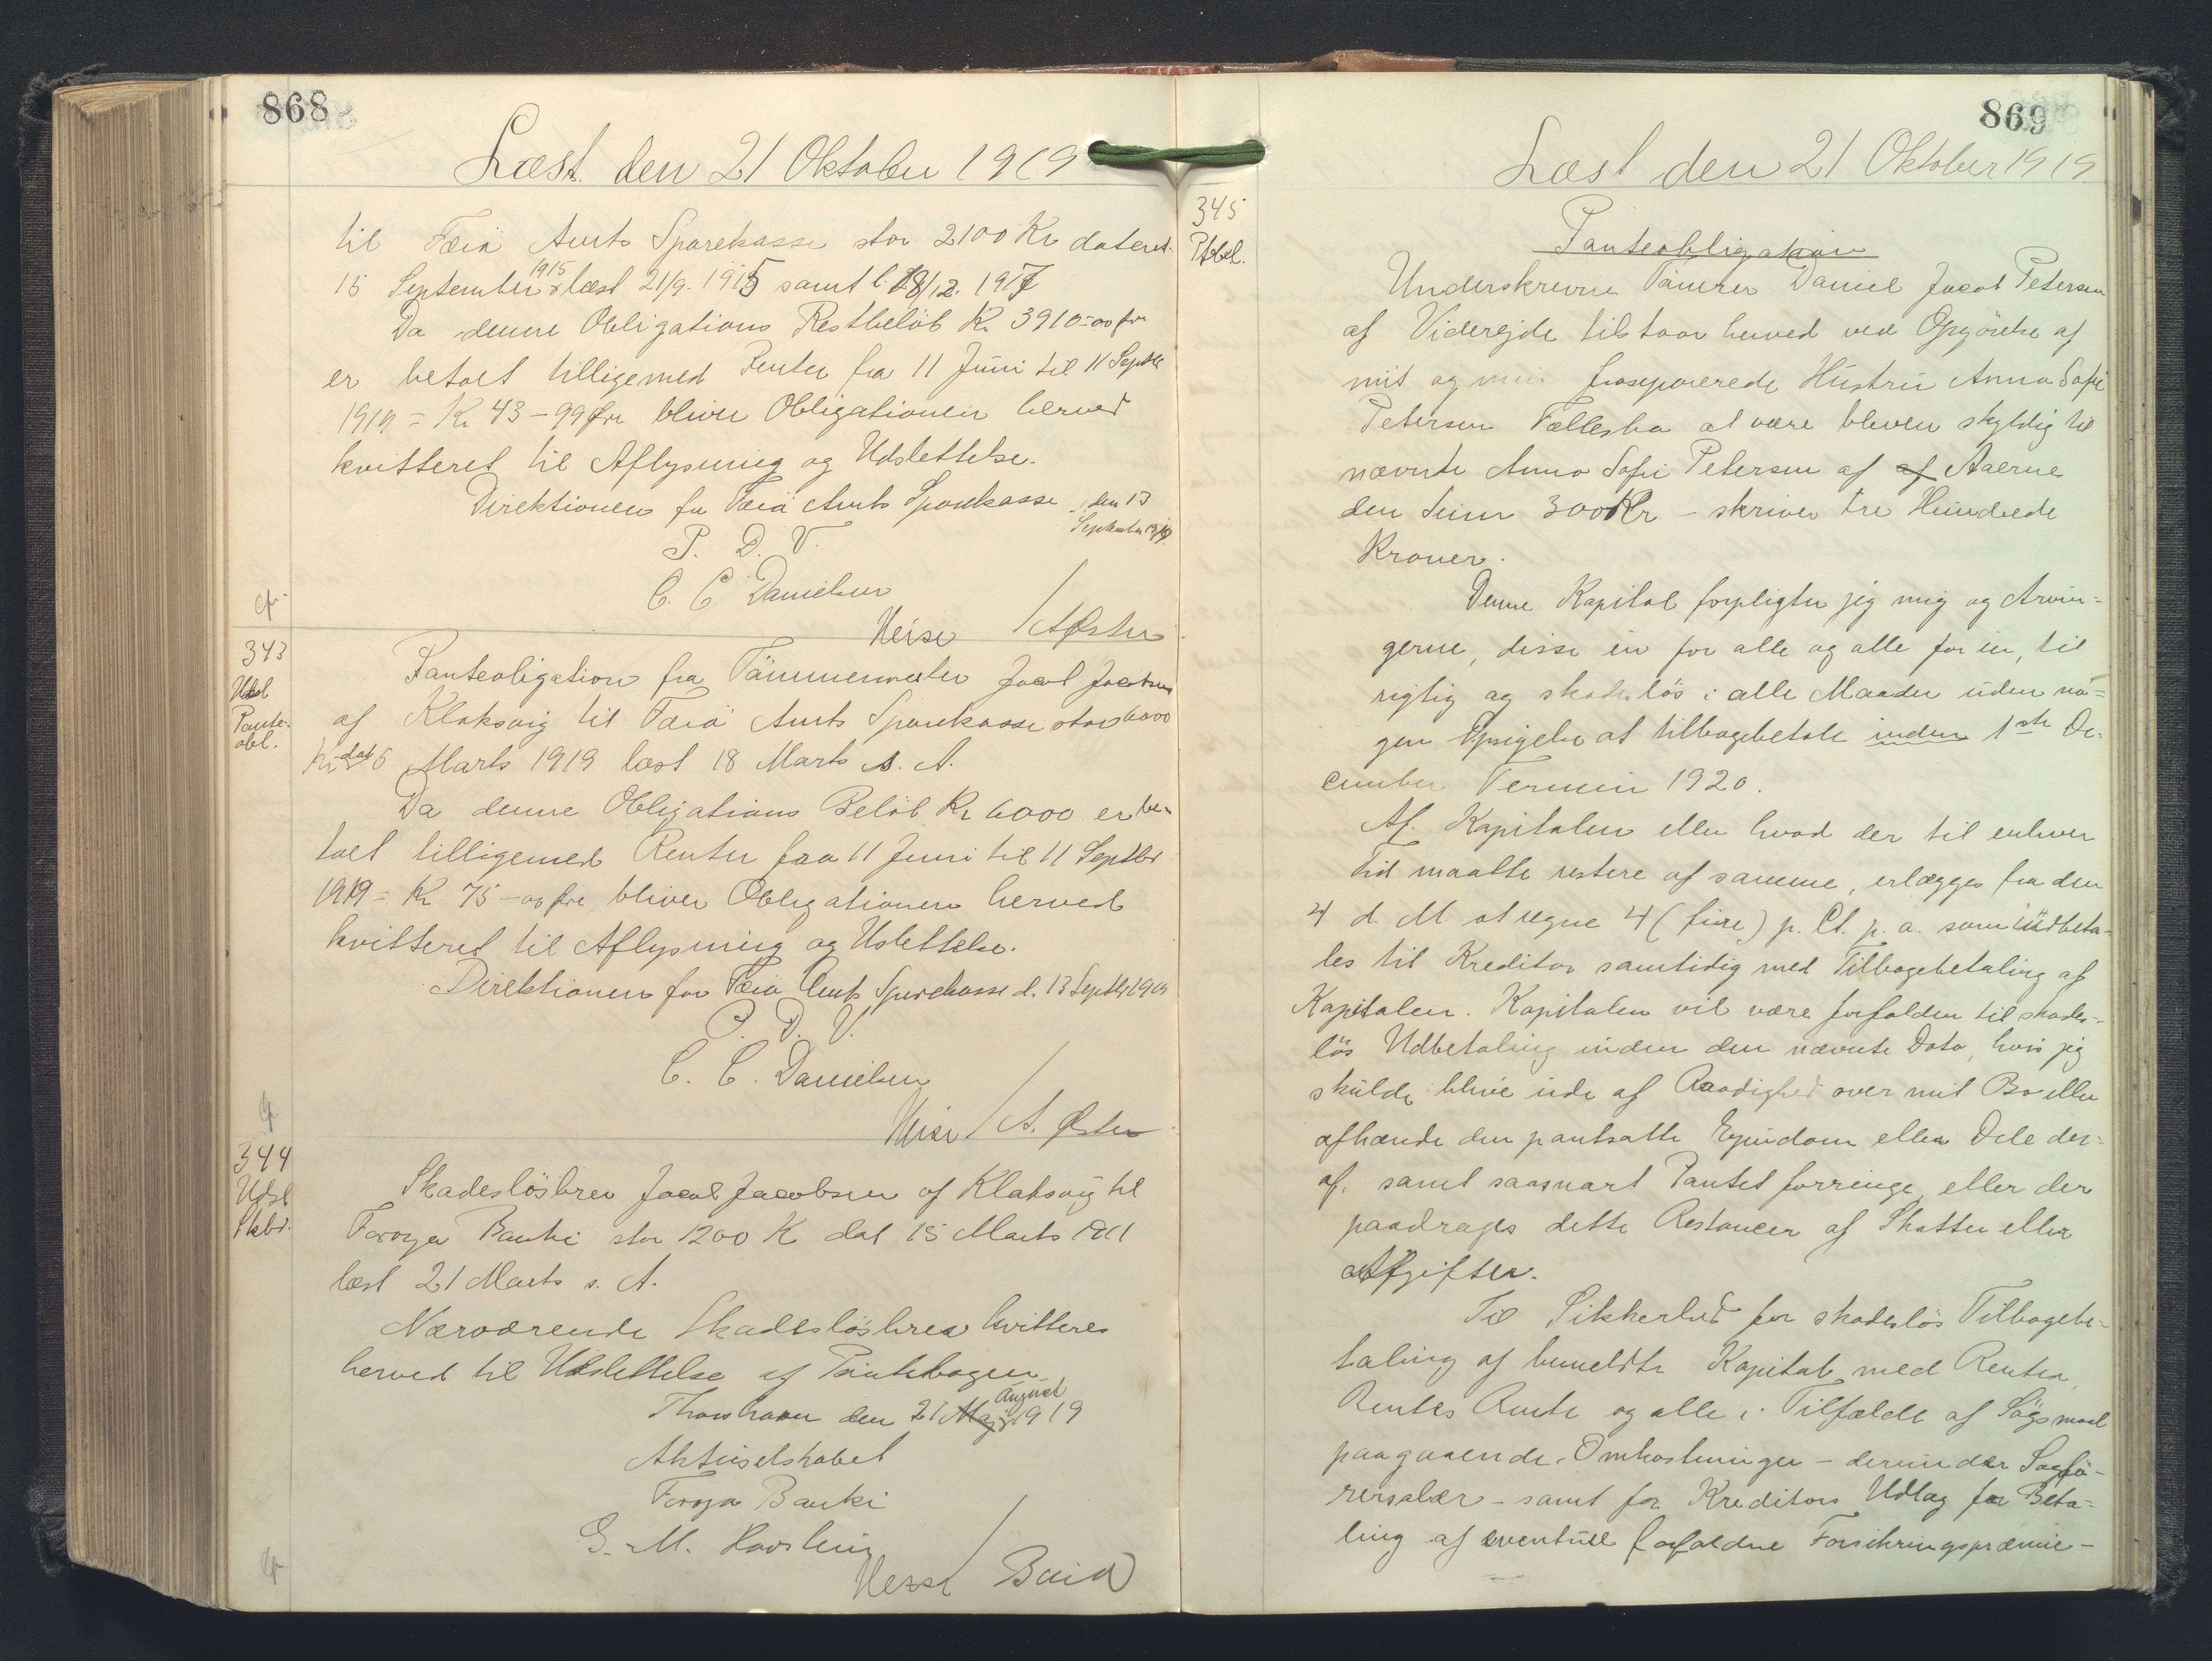 868
Læst den 21 Oktober 1919
til Færö Amts Sparekasse stor 2100 Kr dateret
15 September 1915 læst 21/9. 1915 samt l. 18/12. 1917
Da denne Obligations Restbelöb Kr 3910-00 Øre
er betalt tilligemed Renter fra 11 Juni til 11 Septbr
1919 = Kr 43-99 Øre bliver Obligationen herved
kvitteret til Aflysning og Udslettelse.
Direktionen for Færö Amts Sparekasse, den 13
September 1919
P. D. V.
C. C. Danielsen
Heise / A Øster
343
Udsl
Pante-
obl.
Panteoligation fra Tömmermester Jacob Jacobsen
af Klaksvig til Færö Amts Sparekasse stor 6000
Kr dat 5 Marts 1919 læst 18 Marts s. A.
Da denne Obligations Belöb Kr 6000 er be-
talt tilligemed Renter fra 11 Juni til 11 Septbr
1919 = Kr 75-00 Øre bliver Obligationen herved
kvitteret til Aflysning og Udslettelse.
Direktionen for Færö Amts Sparekasse d. 13 Septbr 1919
P. D. V.
C. C. Danielsen
Heise / A. Øster
344
Udsl
Skbr.
Skadeslösbrev Jacob Jacobsen af Klaksvig til
Foroya Banki stor 1200 K dat 15 Marts 1911
læst 21 Marts s. A.
Nærværende Skadeslösbrev kvitteres
herved til Udslettelse af Pantebogen.
Thorshavn den 21 Maj August 1919
Aktieselskabet
Foroya Banki
G. M.
Heise / Baid
869
Læst den 21 Oktober 1919
345
Ptobl.
Panteobligation
Underskrevne Tömrer Daniel Jacob Petersen
af Viderejde tilstaar herved ved Opgörelse af
mit og min fraseparerede Hustru Anna Sofie
Petersen Fællesbo at være bleven skyldig til
nævnte Anna Sofie Petersen af af Aaerne
den Sum 300 Kr - skriver tre Hundrede
Kroner.
Denne Kapital forpligter jeg mig og Arvin=
gerne, disse en for alle og alle for en, til
rigtig og skadeslös i alle Maader uden no=
gen Opsigelse at tilbagebetale inden 1ste De-
cember Termin 1920.
Af Kapitalen eller hvad der til enhver
Tid maatte restere af samme, erlægges fra den
4 d. M at regne 4 (fire) p. Ct. p. a. som udbeta-
les til Kreditor samtidig med Tilbagebetaling af
Kapitalen. Kapitalen vil være forfalden til skades-
lös Udbetaling inden den nævnte Dato, hvis jeg
skulde blive ude af Raadighed over mit Bo eller
afhænde den pantsatte Ejendom eller Dele der=
af, samt saasnart Pantet forringes, eller der
paadrages dette Restancer af Skatter eller
Afgifter.
Til Sikkerhed for skadeslös Tilbagebe-
taling af bemeldte Kapital med Renter,
Rentes Rente og alle i Tilfælde af Sögsmaal
paagaaende Omkostninger - derunder Sagfö-
rersalær - samt for Kreditors Udlæg for Beta=
ling af eventuel forfaldne Forsikringspræmie-